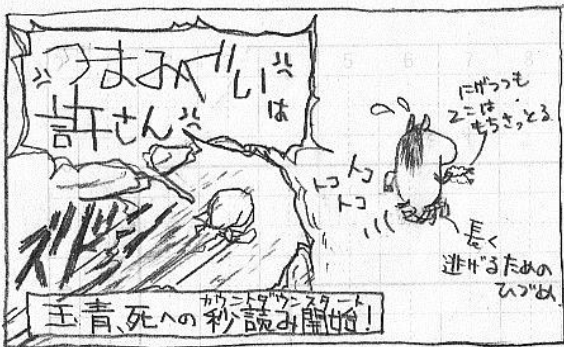 つまみぐいは
許さん
にげつつも
そこは
もちさっとる
トコ
トコ
トコ
長く
逃げるための
ひづめ
ズドドド
玉青、死への秒読み開始!
カウントダウンスタート